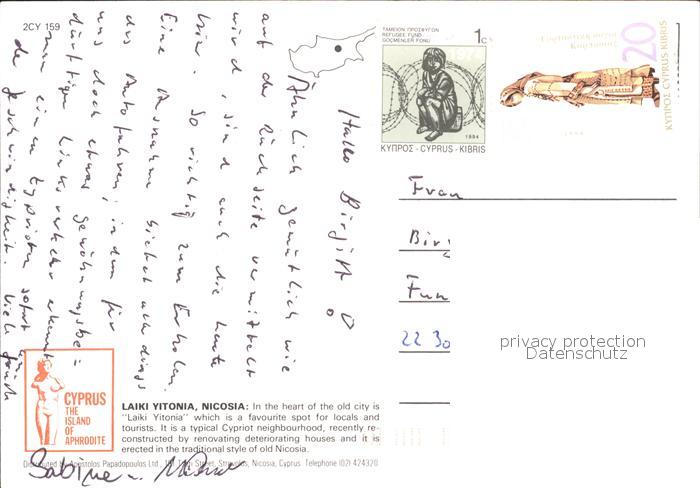 2CY 159
ΤΑΜΕΙΟΝ ΠΡΟΣΦΥΓΩΝ
REFUGEE FUND
GÖÇMENLER FONU
1c
1974
1994
ΚΥΠΡΟΣ - CYPRUS - KIBRIS
20
ΚΥΠΡΟΣ CYPRUS KIBRIS
1994
Hallo Birgitt!
Ähnlich gemütlich wie
auf der Rückseite vermittelt
wird sind auch die Leute
hier. So richtig zum Erholen.
Eine Ausnahme bietet allerdings
das Autofahren; in dem für
uns doch etwas gewöhnungsbe=
dürftigen Linksverkehr erkennt
man einen Zyprioten sofort
Geschwindigkeit. Viele Grüße
Sabine
Frau
Birg
22 30
privacy protection
Datenschutz
CYPRUS
THE
ISLAND
OF
APHRODITE
LAIKI YITONIA, NICOSIA: In the heart of the old city is
"Laiki Yitonia" which is a favourite spot for locals and
tourists. It is a typical Cypriot neighbourhood, recently re-
constructed by renovating deteriorating houses and it is
erected in the traditional style of old Nicosia.
Distributed by Apostolos Papadopoulos Ltd., Street, Strovolos, Nicosia, Cyprus. Telephone (02) 424320